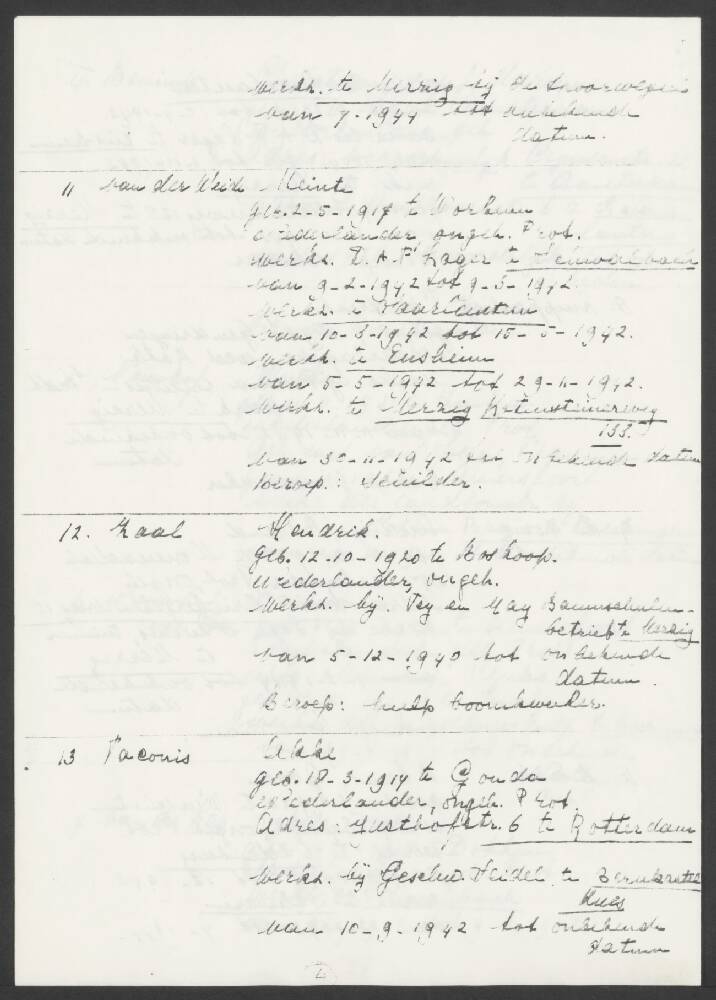 werkz. te Merzig bij de
van 7-1944 tot onbekende
datum.
11 van der Weide Meinte
geb. 2-5-1917 te Workum
Nederlander, ongeh. Prot.
werkz. D.A.F. Lager te
van 9-2-1942 tot 9-3-1942.
werkz. te Saarlautern
van 10-3-1942 tot 15-5-1942.
werkz. te Ensheim
van 5-5-1942 tot 29-11-1942.
werkz. te Merzig
133.
van 30-11-1942 tot onbekende datum
beroep.: schilder.
12. Zaal Hendrik.
geb. 12.10-1920 te Boskoop.
Nederlander, ongeh.
werkz. bij. Fey en May Baumschulen-
betrieb te Merzig
van 5-12-1940 tot onbekende
datum.
Beroep: hulp boomkweker.
13 Paconis Ukke
geb. 18-3-1914 te Gouda
Nederlander, ongeh. Prot.
Adres: str. 6 te Rotterdam
werkz. bij Geschw. Heidel te Bernkastel
Kues
van 10-9-1942 tot onbekende
datum